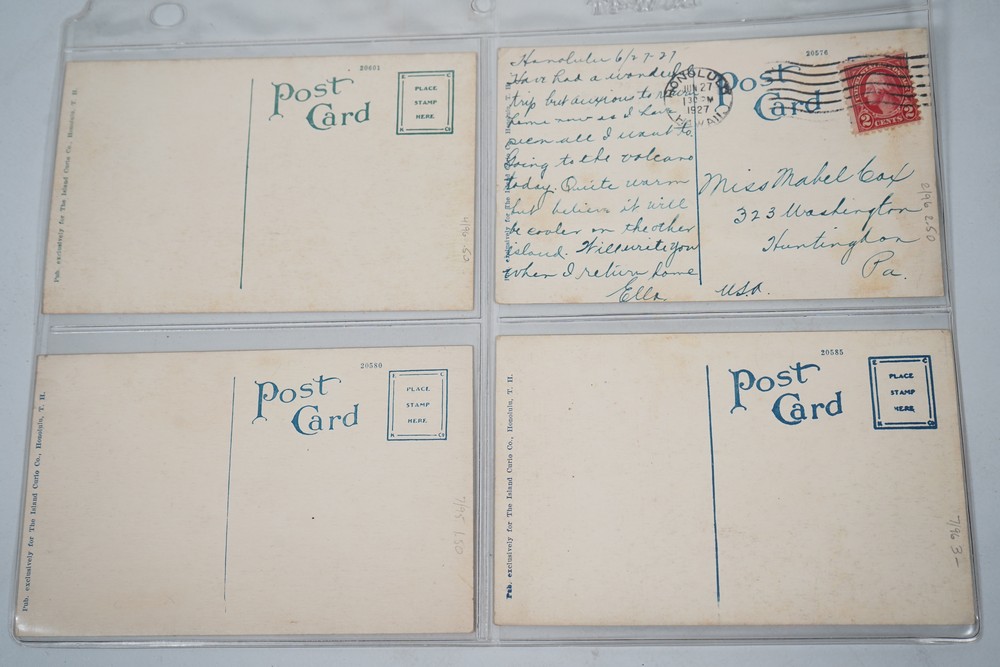 20601
Post
Card
PLACE
STAMP
HERE
E C
K Co
Pub. exclusively for The Island Curio Co., Honolulu, T. H.
4/96 .50
20576
Post
Card
Honolulu 6/27-27
Have had a wonderful
trip but anxious to return
home now as I have
seen all I want to.
Going to the volcano
today. Quite warm
but believe it will
be cooler on the other
island. Will write you
when I return home
Ella.
HONOLULU
JUN 27
1927
HAWAII
2 CENTS 2
Miss Mabel Cox
323 Washington
Huntingdon
Pa.
USA.
exclusively for The Island
2/96 2.50
20580
Post
Card
E C
PLACE
STAMP
HERE
K Co
Pub. exclusively for The Island Curio Co., Honolulu, T. H.
7/95 1.50
20585
Post
Card
E C
PLACE
STAMP
HERE
K Co
Pub. exclusively for The Island Curio Co., Honolulu, T. H.
7/96 3-